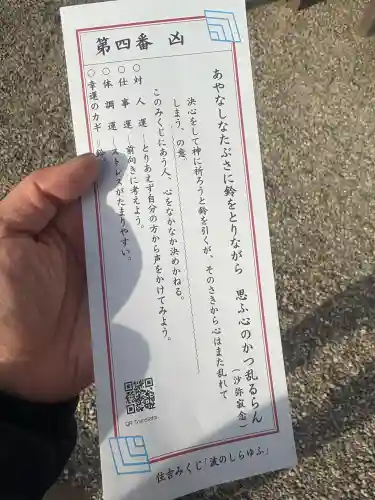 第四番 凶
あやなしなたぶさに鈴をとりながら 思ふ心のかつ乱るらん
(沙弥寂念)
決心をして神に祈ろうと鈴を引くが、そのさきから心はまた乱れて
しまう、の意。
このみくじにあう人、心をなかなか決めかねる。
○対人運―とりあえず自分の方から声をかけてみよう。
○仕事運―前向きに考えよう。
○体調運―ストレスがたまりやすい。
○幸運のカギ=鈴
QR Translator
住吉みくじ「波のしらゆふ」